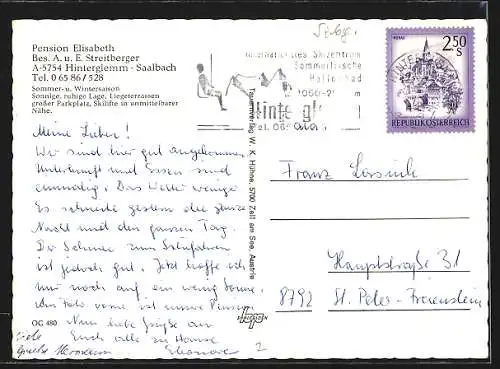 Pension Elisabeth
Bes. A. u. E. Streitberger
A-5754 Hinterglemm - Saalbach
Tel. 0 65 86 / 528
Sommer- u. Wintersaison
Sonnige, ruhige Lage, Liegeterrassen
großer Parkplatz, Skilifte in unmittelbarer
Nähe.
Sbg.
Internationales Skizentrum
Sommerfrische
Hallenbad
Hinterglemm
2.50 S
REPUBLIK ÖSTERREICH
Meine Lieben!
Wir sind hier gut angekommen.
Unterkunft und Essen sind
einmalig. Das Wetter weniger
Es schneite gestern die ganze
Nacht und den ganzen Tag.
Der Schnee zum Schifahren
ist jedoch gut. Jetzt hoffe ich
nur noch auf ein wenig Sonne.
Am Foto vorne ist unsere Pension
Nun liebe Grüße an
Euch alle zu Hause
Eleonore
viele
Grüße Hermann
OG 480
W. K. Hühne, 5700 Zell am See, Austria
Franz
Hauptstraße 31
8792 St. Peter-Freienstein
2